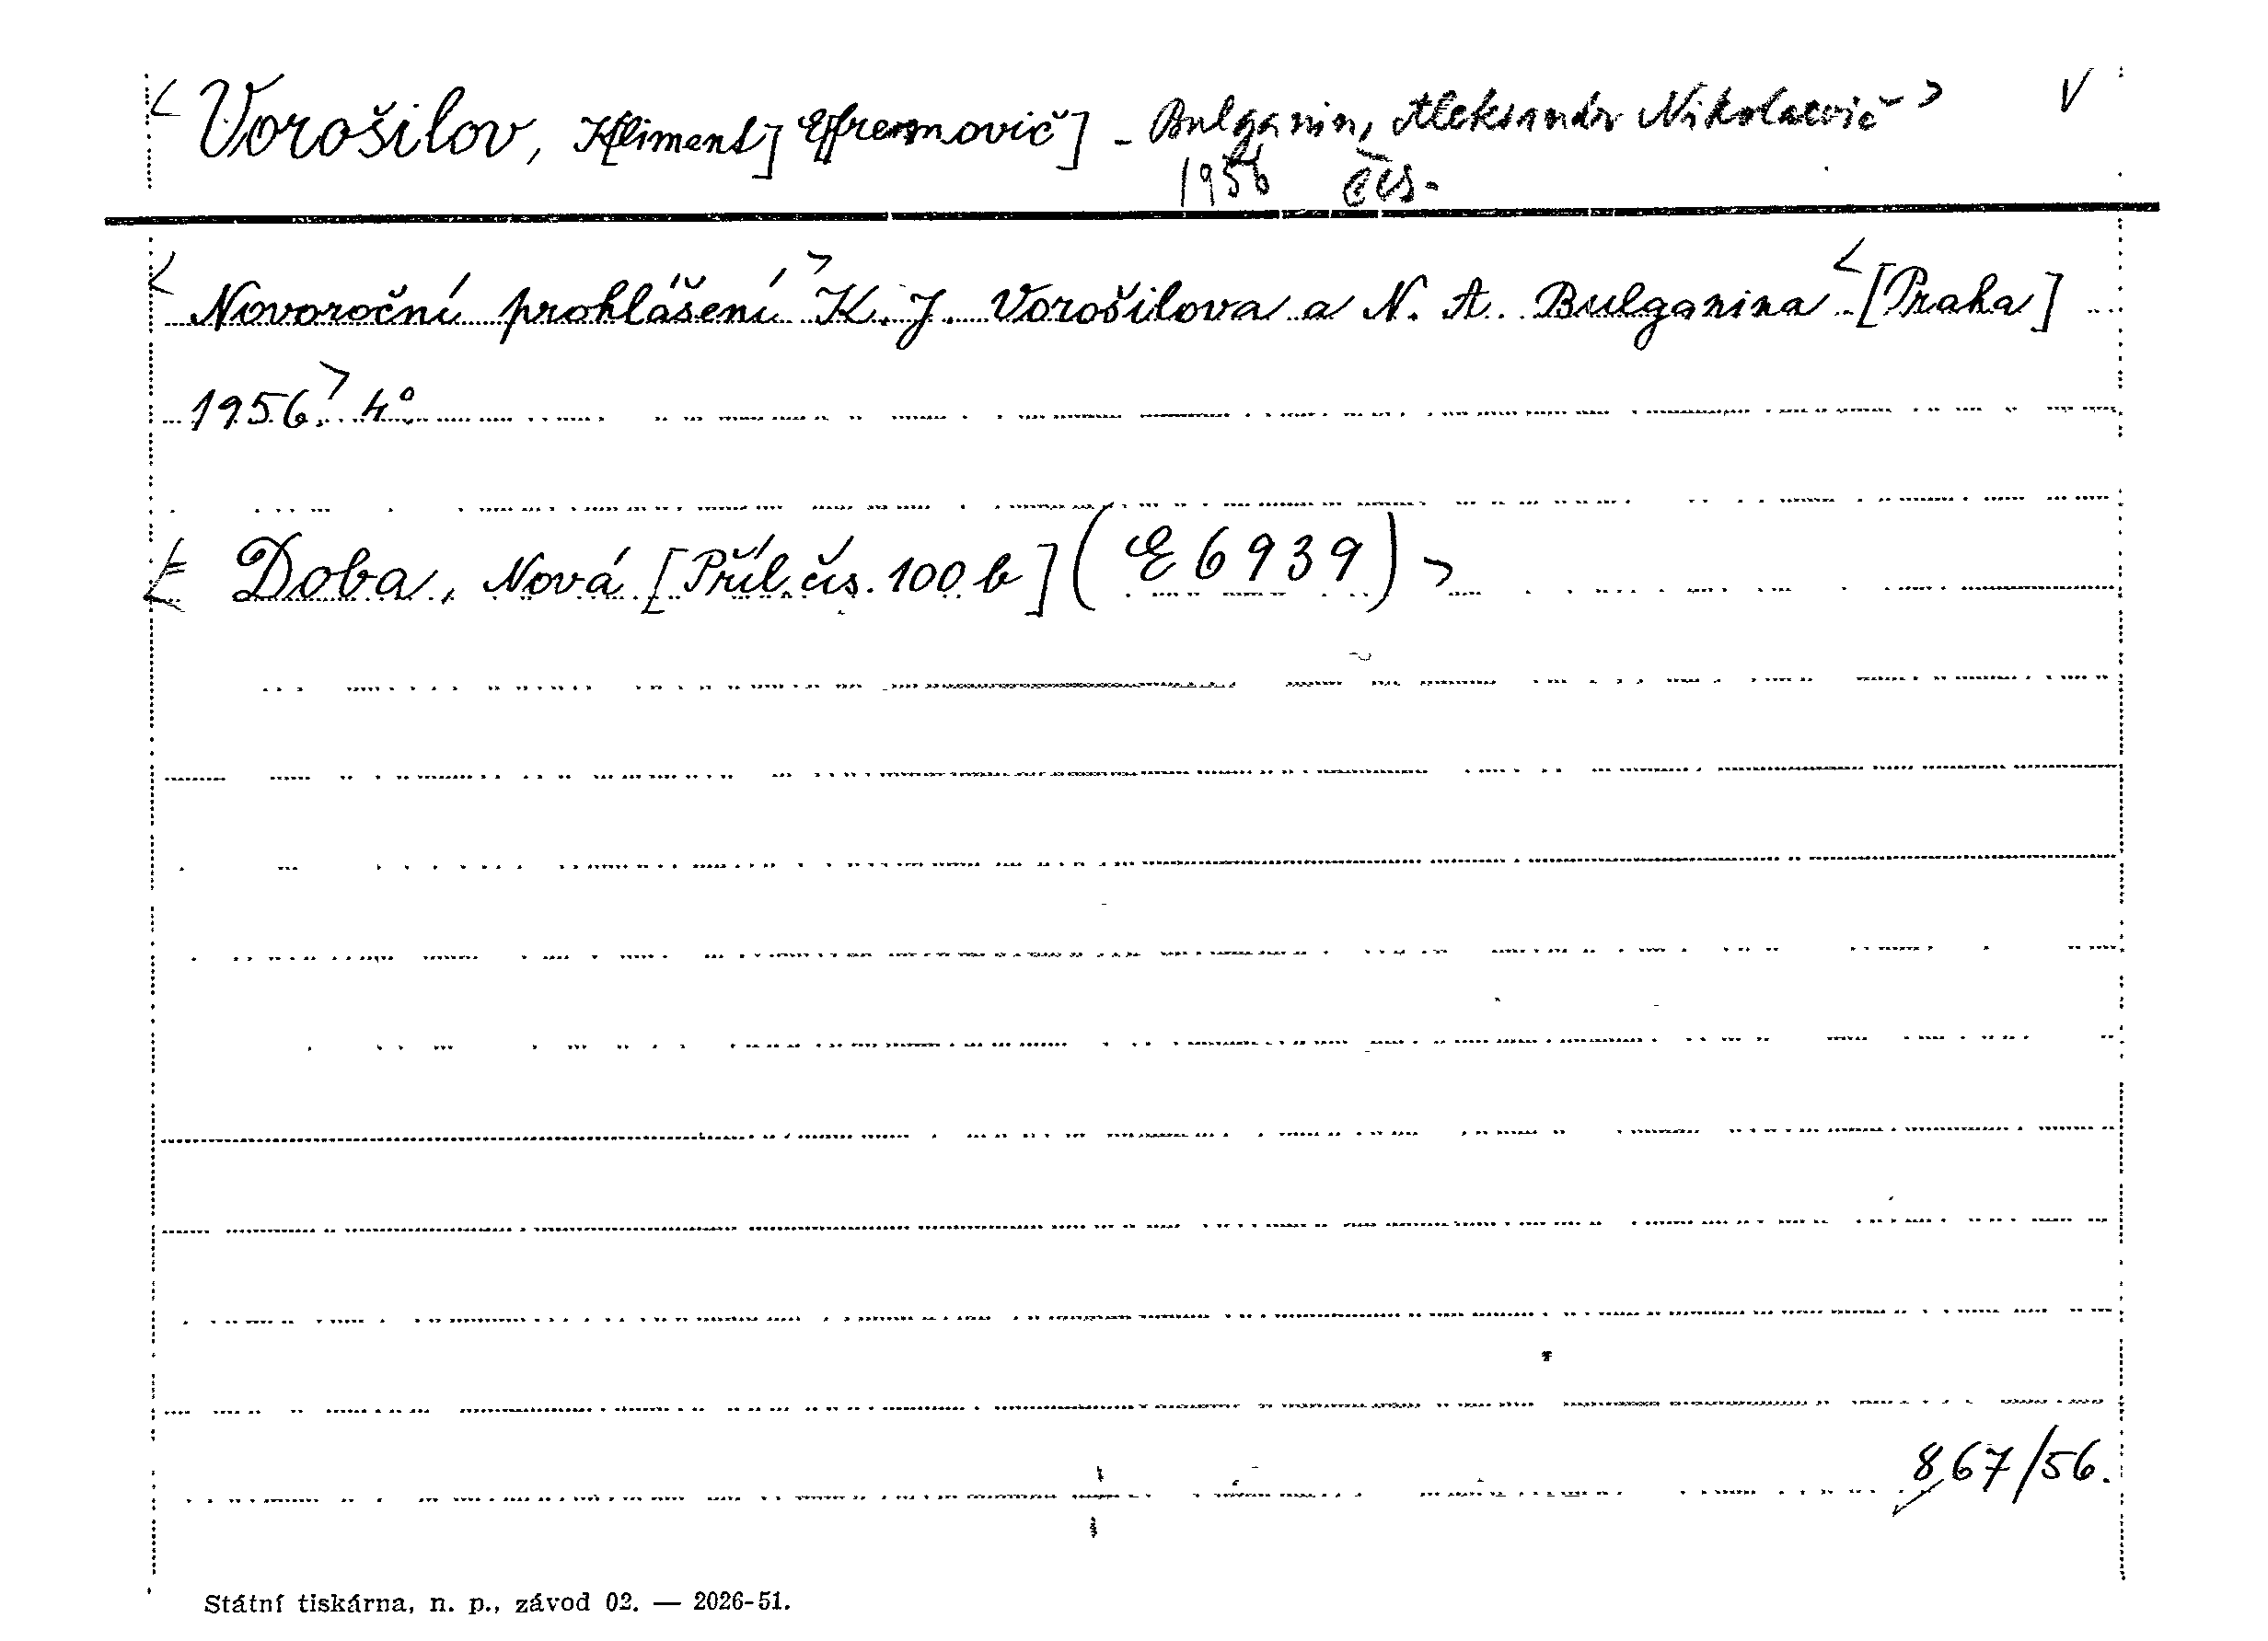 < Vorošilov, K[liment] E[fremovič] - Bulganin, Aleksandr Nikolaevič > V
1956 čes.
< Novoroční prohlášení > K. J. Vorošilova a N. A. Bulganina < [Praha]
1956. > 4°.
< Doba, Nová [Příl. čís. 100 b] (E 6939) >
867/56.
Státní tiskárna, n. p., závod 02. — 2026-51.